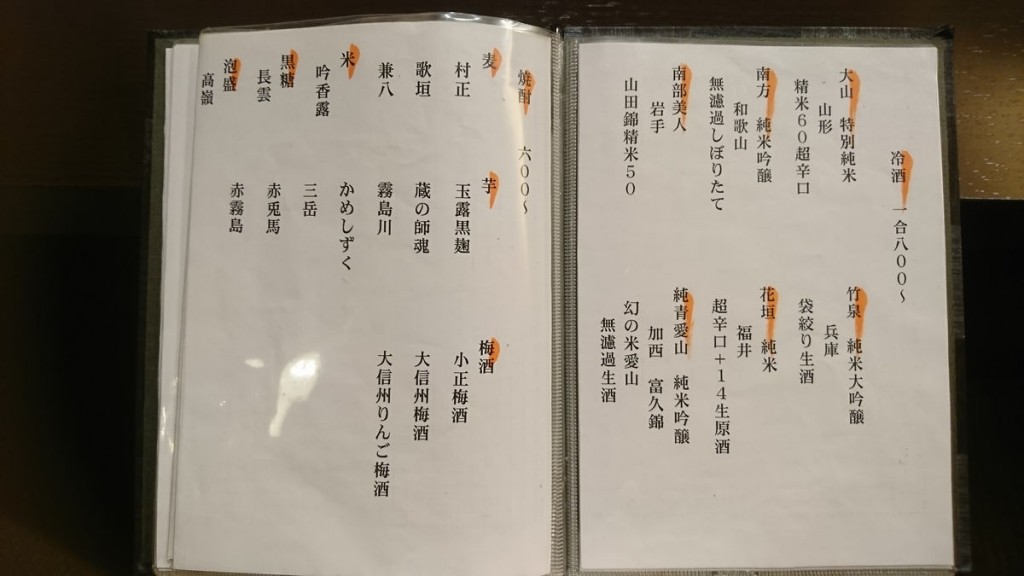 冷酒 一合八００～
大山 特別純米
山形
精米６０超辛口
南方 純米吟醸
和歌山
無濾過しぼりたて
南部美人
岩手
山田錦精米５０
竹泉 純米大吟醸
兵庫
袋絞り生酒
花垣 純米
福井
超辛口＋１４生原酒
純青愛山 純米吟醸
加西 富久錦
幻の米愛山
無濾過生酒
焼酎 六００～
麦
村正
歌垣
兼八
米
吟香露
黒糖
長雲
泡盛
高嶺
芋
玉露黒麹
蔵の師魂
霧島川
かめしずく
三岳
赤兎馬
赤霧島
梅酒
小正梅酒
大信州梅酒
大信州りんご梅酒